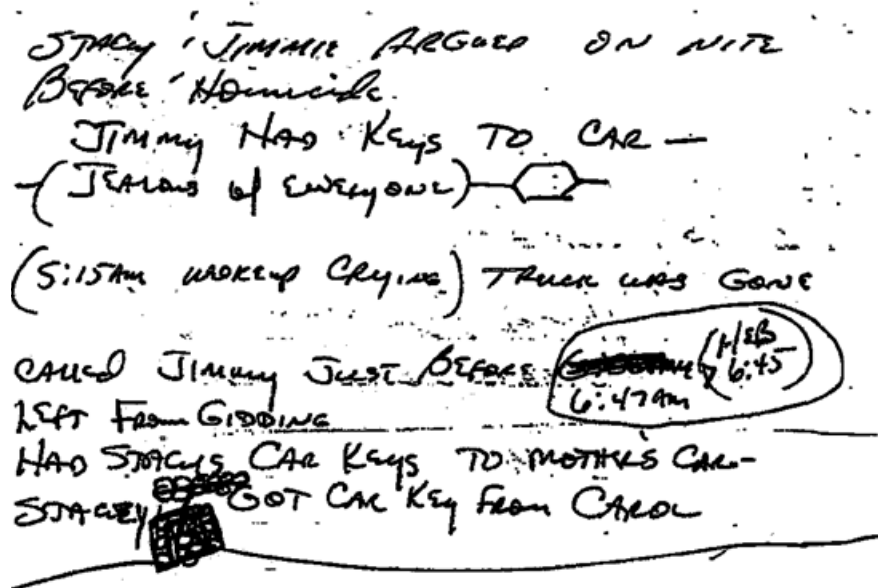 STACY & JIMMIE ARGUED ON NITE
BEFORE Homicide.
JIMMY HAD KEYS TO CAR —
-(JEALOUS of EVERYONE)-
(5:15AM WOKEUP CRYING) TRUCK WAS GONE
CALLED JIMMY JUST BEFORE (HEB
6:47AM 6:45)
LEFT From GIDDING
HAD STACYS CAR KEYS TO MOTHERS CAR-
STACEY GOT CAR KEY FROM CAROL